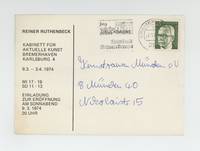 REINER RUTHENBECK
KABINETT FÜR
AKTUELLE KUNST
BREMERHAVEN
KARLSBURG 4
9.3. – 3.4. 1974
MI 17-19
SO 11-13
EINLADUNG
ZUR ERÖFFNUNG
AM SONNABEND
9.3.1974
20 UHR
Kunstraum München e.V.
8 München 40
Nicolaistr. 15